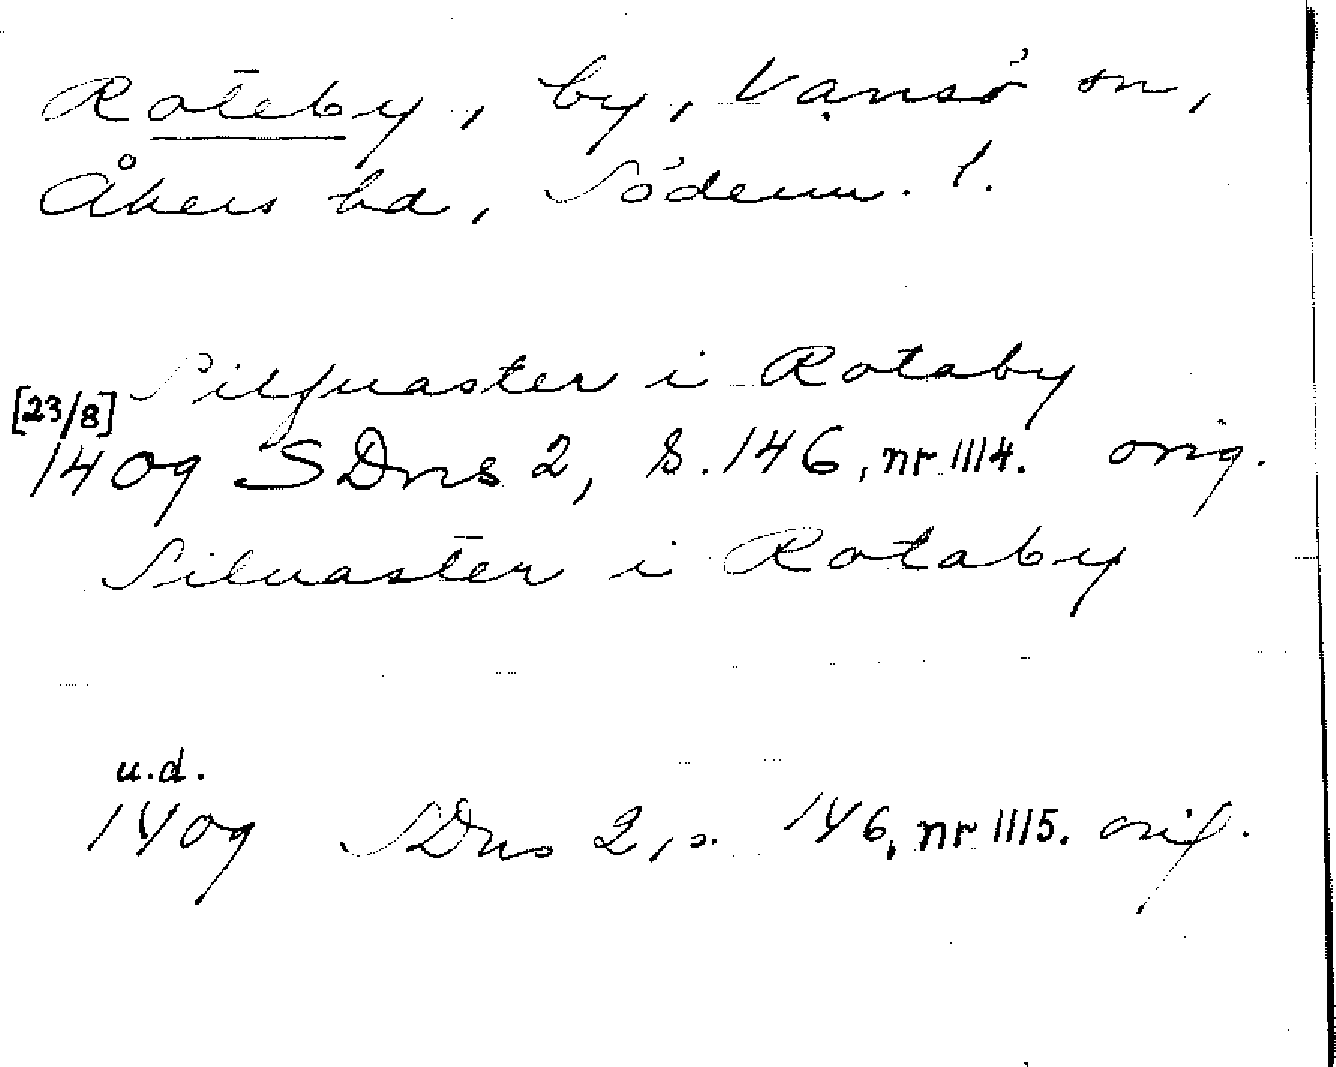 Roteby, by, Vansö sn,
Åkers hd, Söderm. l.
Silfuaster i Rotaby
[23/8]
1409 SDns 2, s. 146, nr 1114. orig.
Siluaster i Rotaby
u.d.
1409 SDns 2, s. 146, nr 1115. orig.